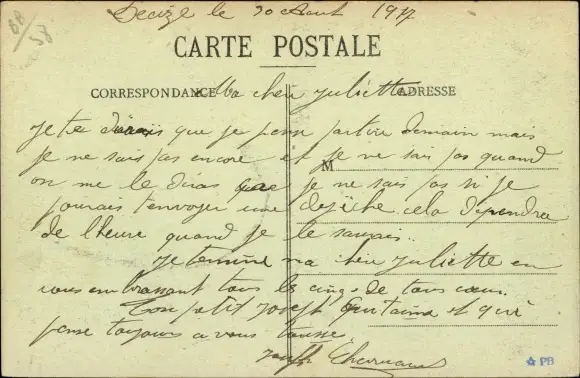 Decize le 30 Aout 1917
CARTE POSTALE
CORRESPONDANCE ADRESSE
Ma cheu Juliette
Je te dirais que je pense partire demain mais
je ne sais pas encore et je ne sais pas quand
M
on me le diras que je ne sais pas si je
pourais tenvoyer une depeche cela dependra
de lheure quand je le saurais..
Je termine ma cheu Juliette en
vous embrassant tous les cinq de tous cœur.
Ton petit Joseph qui taime et qui
pense toujours a vous tousse
Joseph
PB
68
58